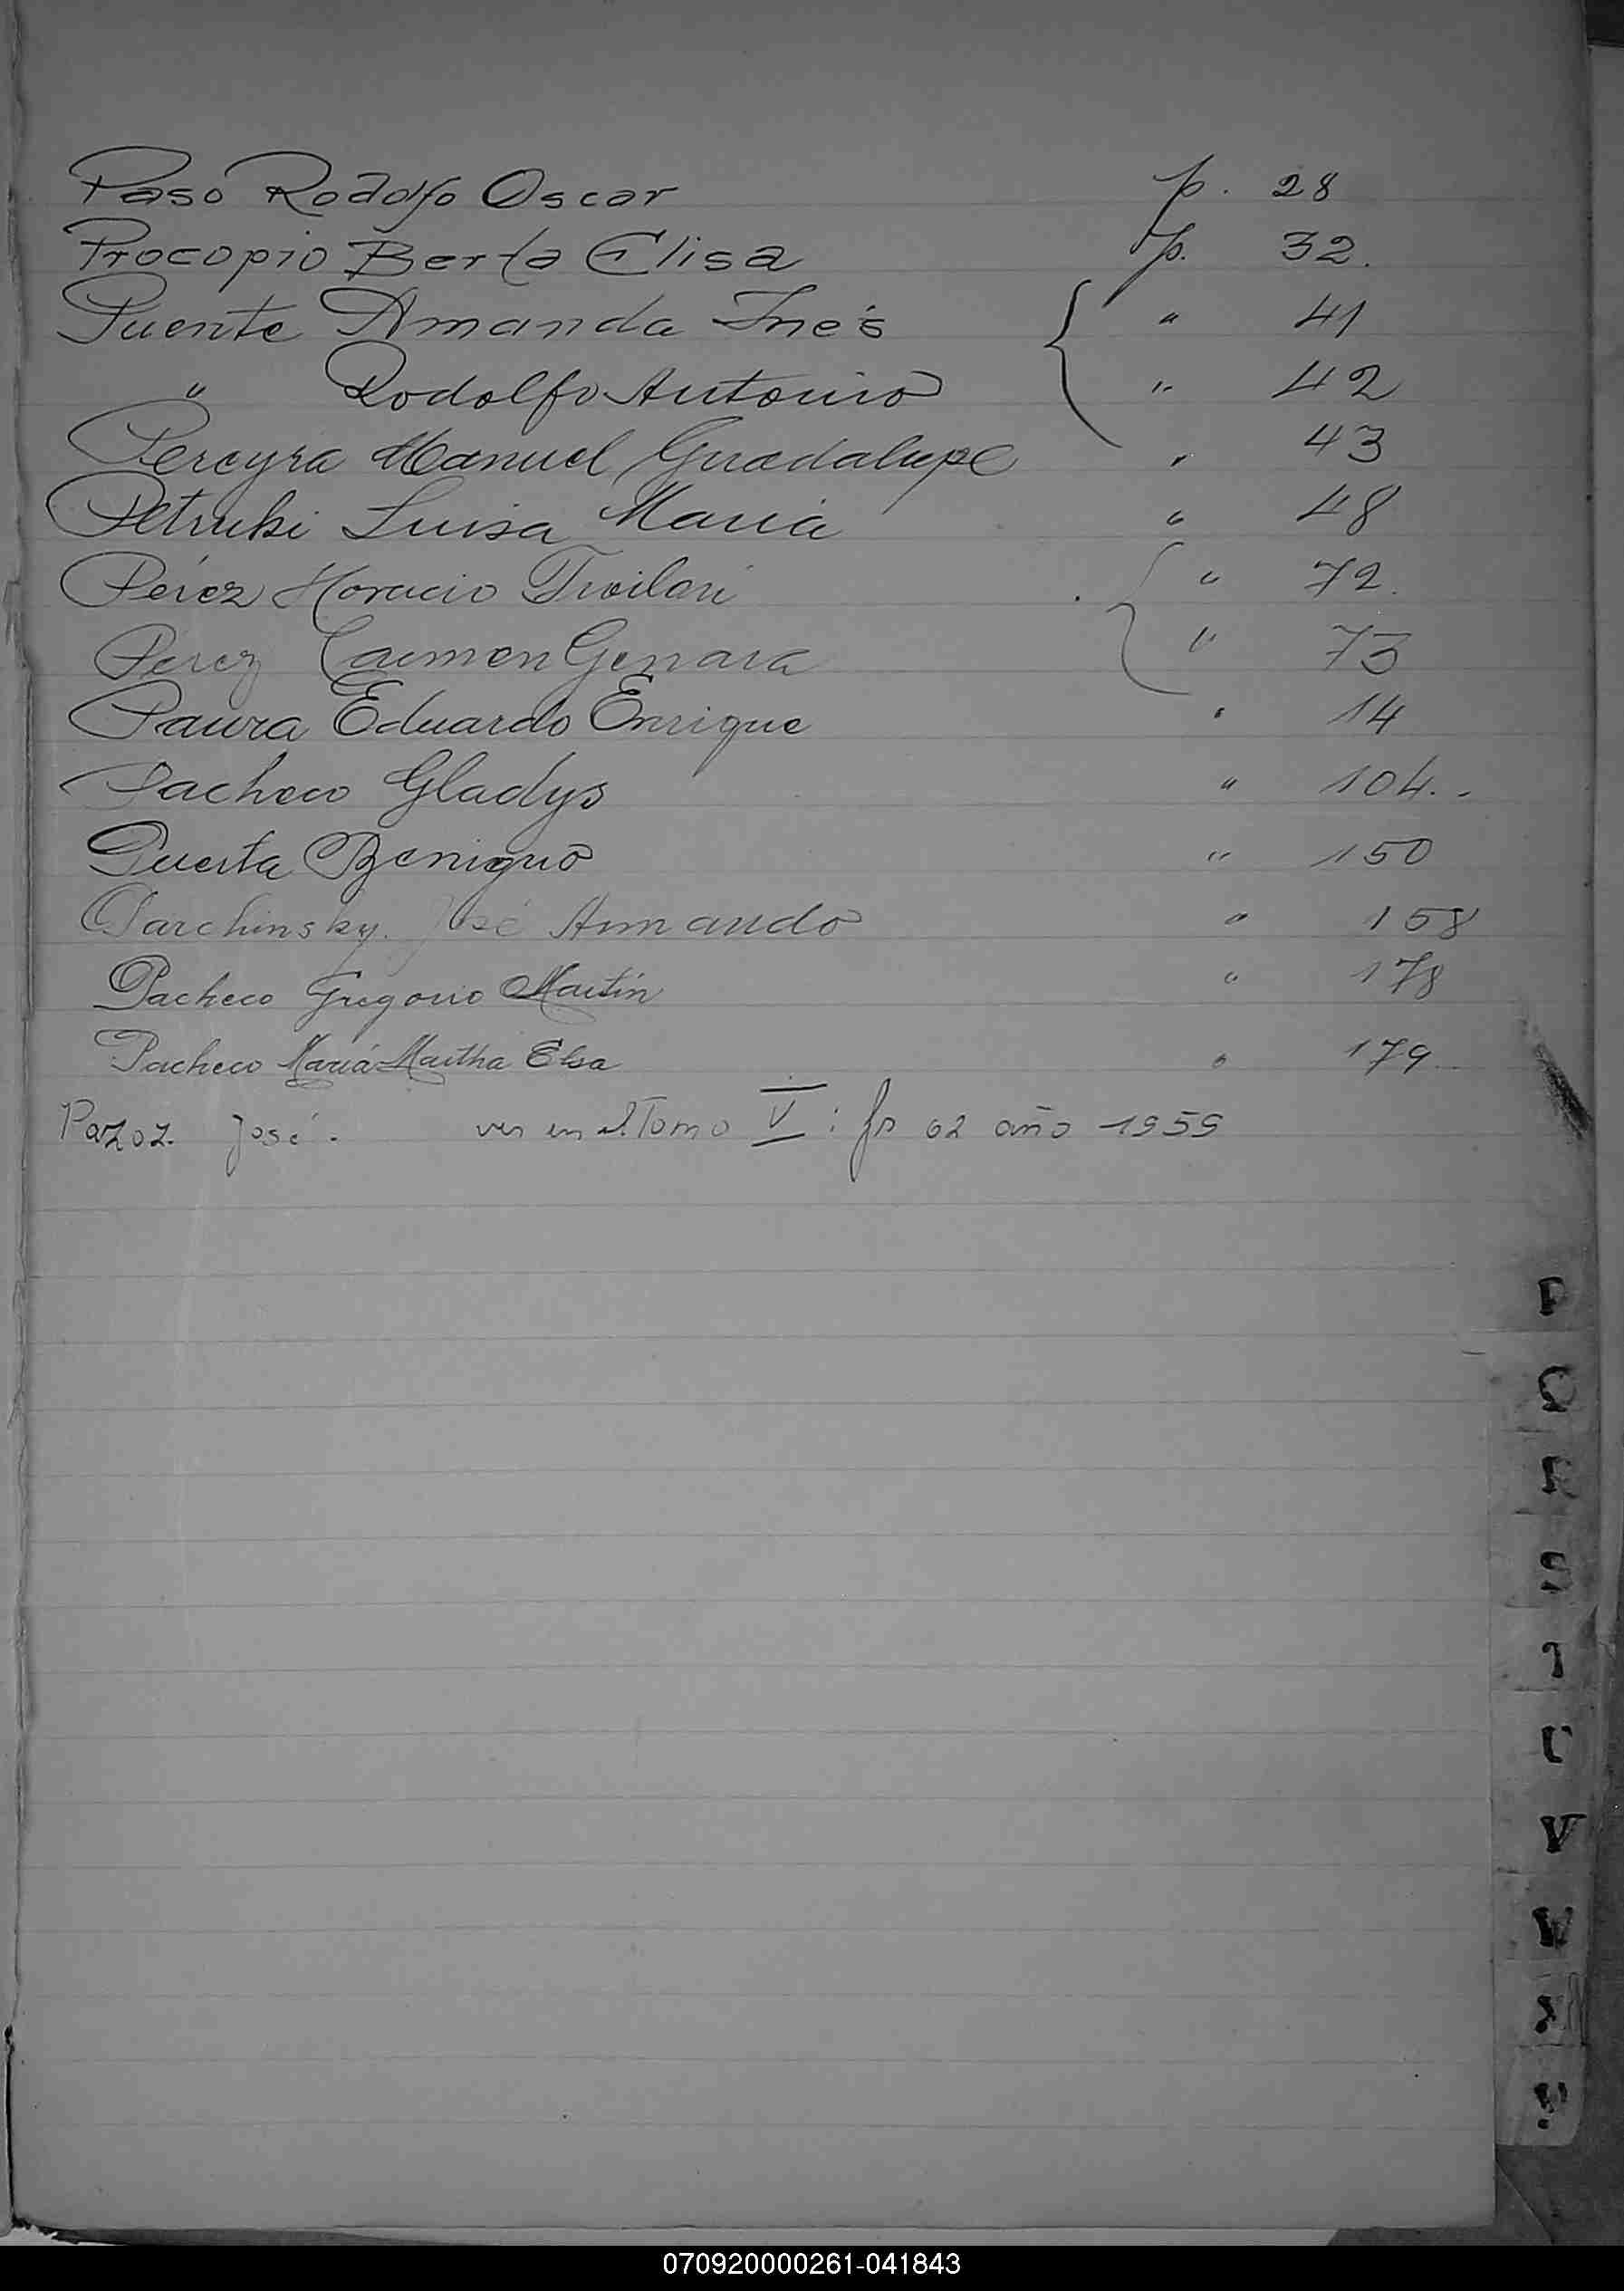 Paso Rodolfo Oscar p. 28
Procopio Berta Elisa p. 32.
Puente Amanda Inés { " 41
" Rodolfo Antonio " 42
Pereyra Manuel Guadalupe " 43
Petruki Luisa María " 48
Pérez Horacio { " 72.
Pérez Carmen Genara " 73
Paura Eduardo Enrique " 14
Pacheco Gladys " 104.-
Puerta Benigno " 150
Parchinsky. José Armando " 158
Pacheco Gregorio Martín " 178
Pacheco María Martha Elsa " 179
Pazoz. José. ver en el Tomo V : fo 62 año 1959
P
Q
R
S
T
U
V
W
070920000261-041843